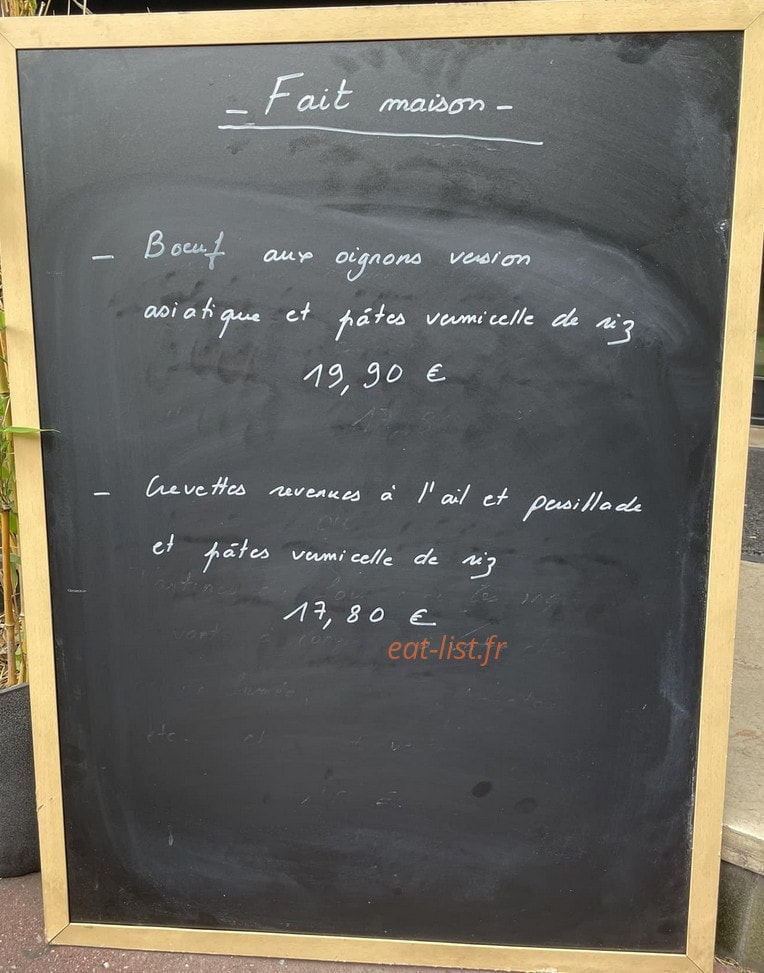 - Fait maison -
- Boeuf aux oignons version
asiatique et pâtes vermicelle de riz
19,90 €
- Crevettes revenues à l'ail et persillade
et pâtes vermicelle de riz
17,80 €
eat-list.fr